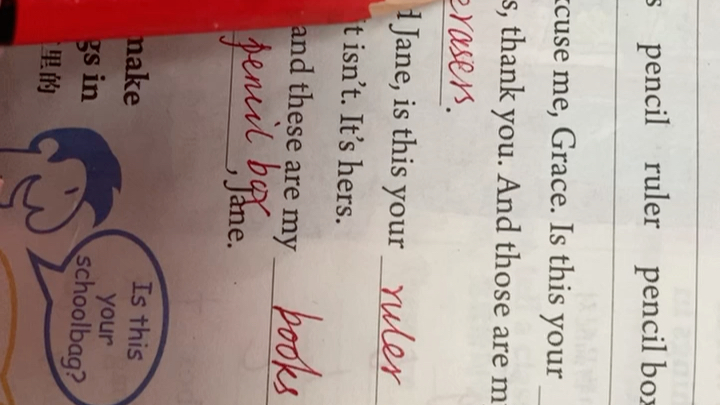 s pencil ruler pencil box
cuse me, Grace. Is this your
s, thank you. And those are m
erasers.
d Jane, is this your ruler
t isn't. It's hers.
and these are my books
pencil box, Jane.
make
gs in
里的
Is this
your
schoolbag?